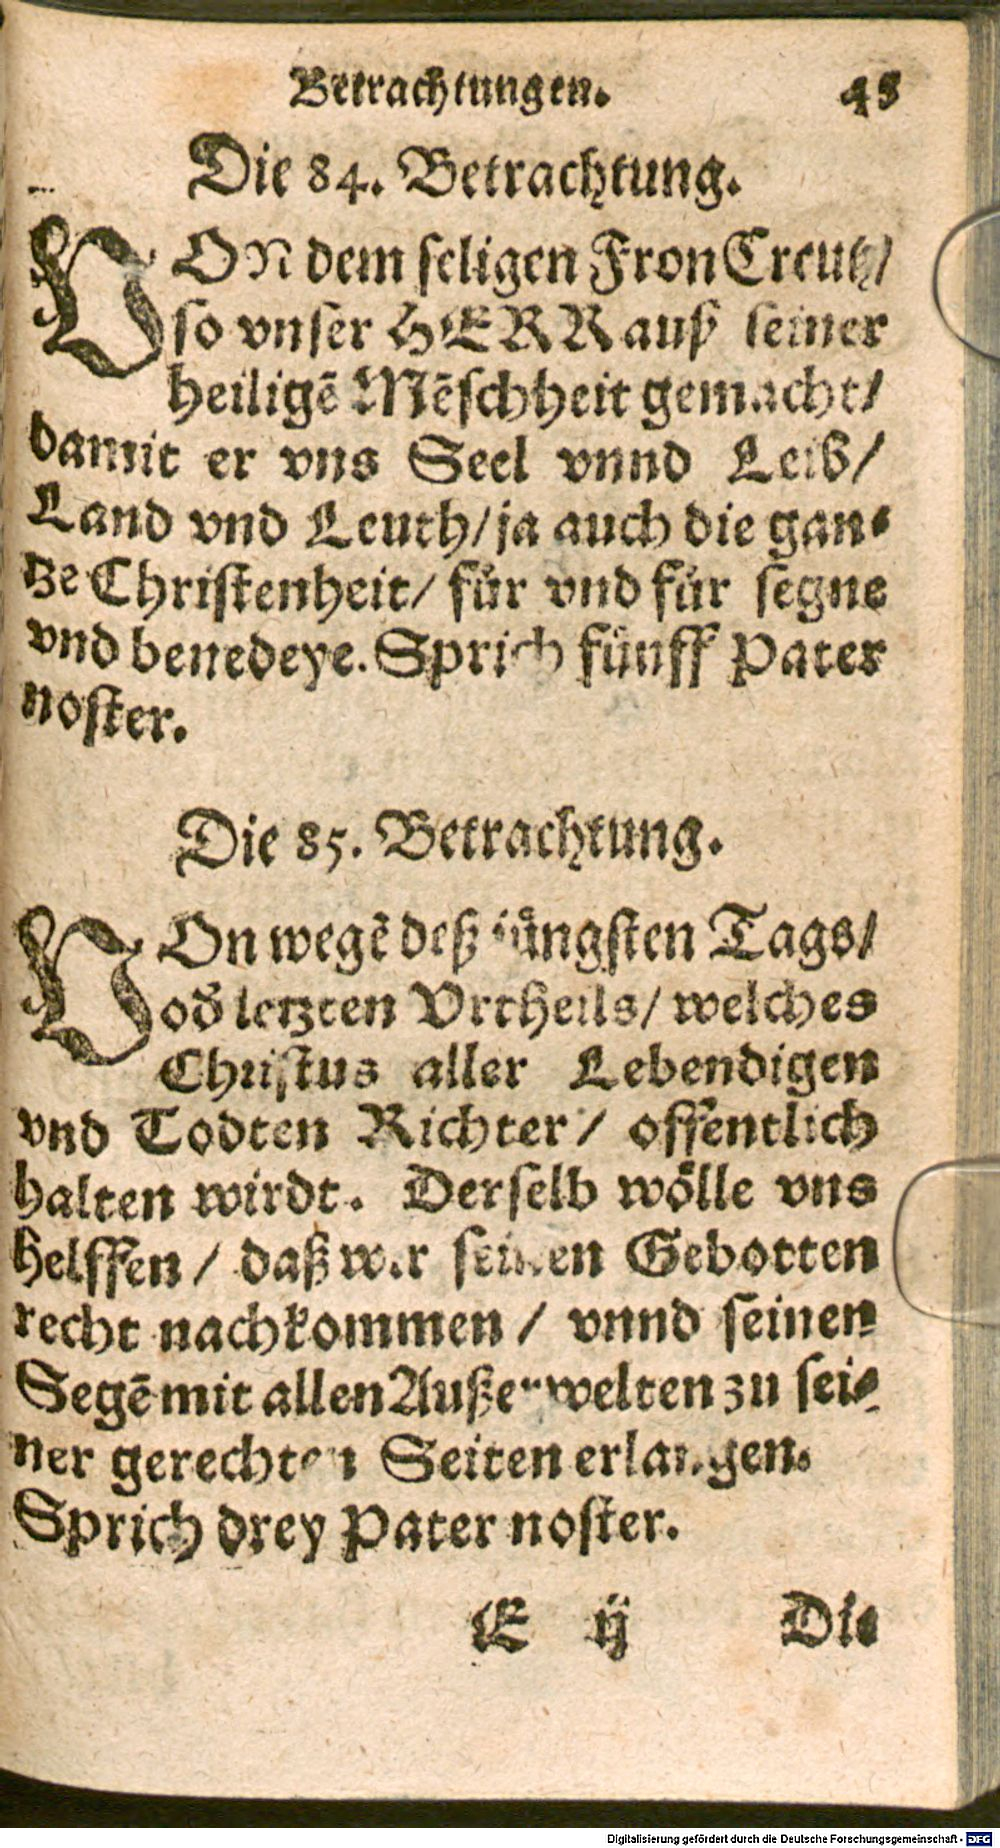 Betrachtungen. 45
Die 84. Betrachtung.
VON dem seligen Fron Creutz/
so vnser HERR auß seiner
heiligē Mēschheit gemacht/
damit er vns Seel vnnd Leib/
Land vnd Leuth/ ja auch die gan-
tze Christenheit/ für vnd für segne
vnd benedeye. Sprich fünff Pater
noster.
Die 85. Betrachtung.
VOn wegē deß jüngsten Tags/
od̄ letzten Vrtheils/ welches
Christus aller Lebendigen
vnd Todten Richter/ offentlich
halten wirdt. Derselb wölle vns
helffen/ daß wir seinen Gebotten
recht nachkommen/ vnnd seinen
Segē mit allen Außerwelten zu sei-
ner gerechten Seiten erlangen.
Sprich drey Pater noster.
E ij Die
Digitalisierung gefördert durch die Deutsche Forschungsgemeinschaft - DFG